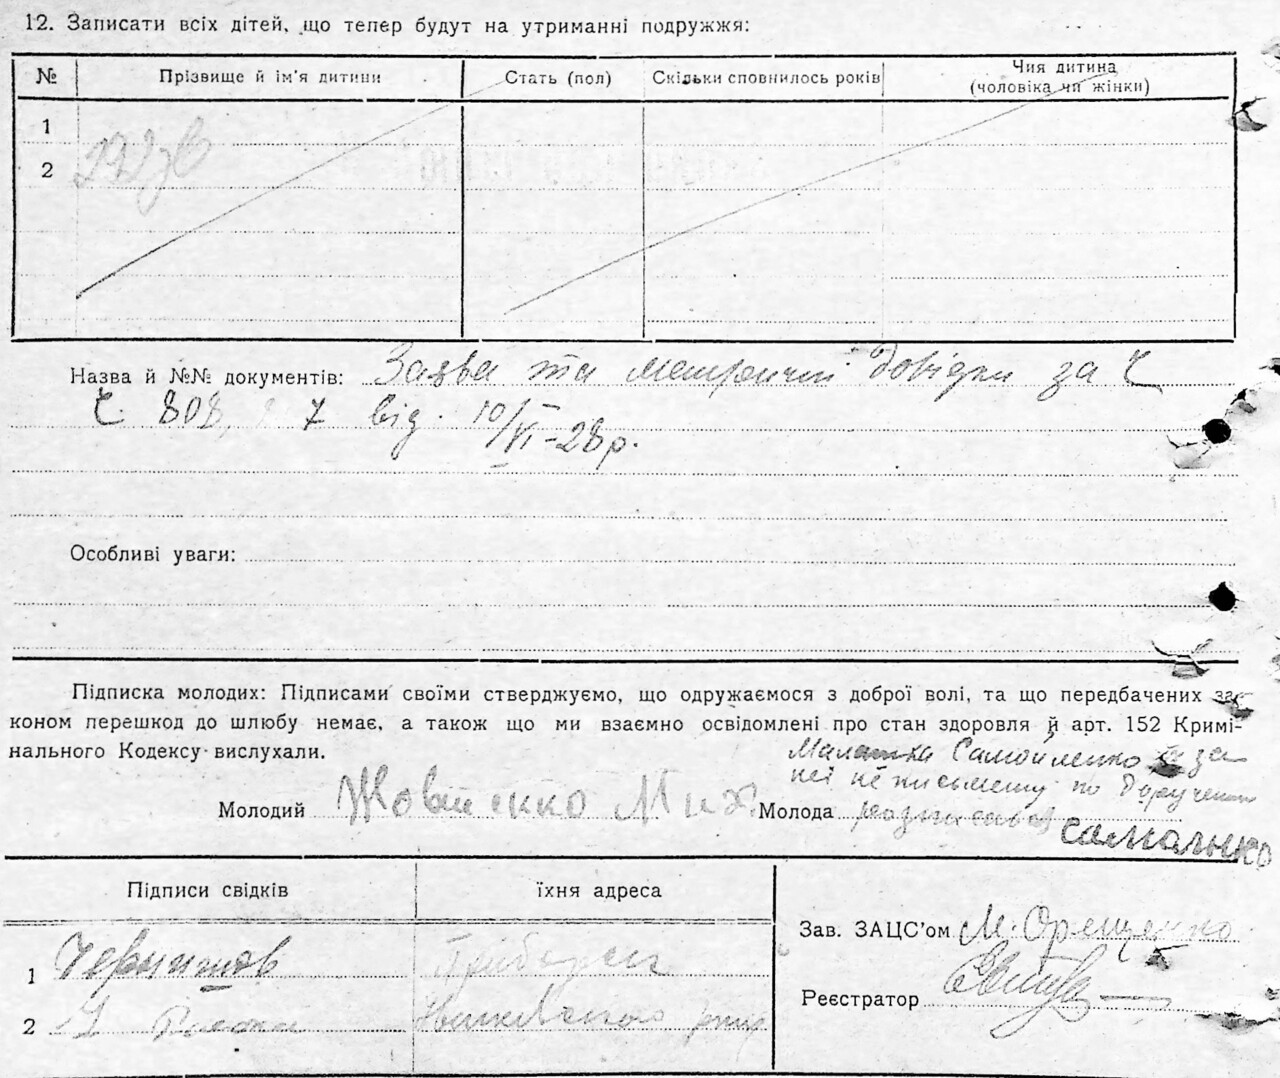 12. Записати всіх дітей, що тепер будут на утриманні подружжя:
№ Прізвище й ім'я дитини Стать (пол) Скільки сповнилось років Чия дитина (чоловіка чи жінки)
1
2
Назва й №№ документів: Заява та метричні довідки за Ч
Ч 808, 7 від. 10/VI-28р.
Особливі уваги:
Підписка молодих: Підписами своїми стверджуємо, що одружаємося з доброї волі, та що передбачених за-
коном перешкод до шлюбу немає, а також що ми взаємно освідомлені про стан здоровля й арт. 152 Кримі-
нального Кодексу вислухали.
Самойленко за
неї не письмену по доручен
Молодий Мих. Молода расписався
Підписи свідків їхня адреса
Зав. ЗАЦС'ом М. Орещенко
1
Реєстратор
2